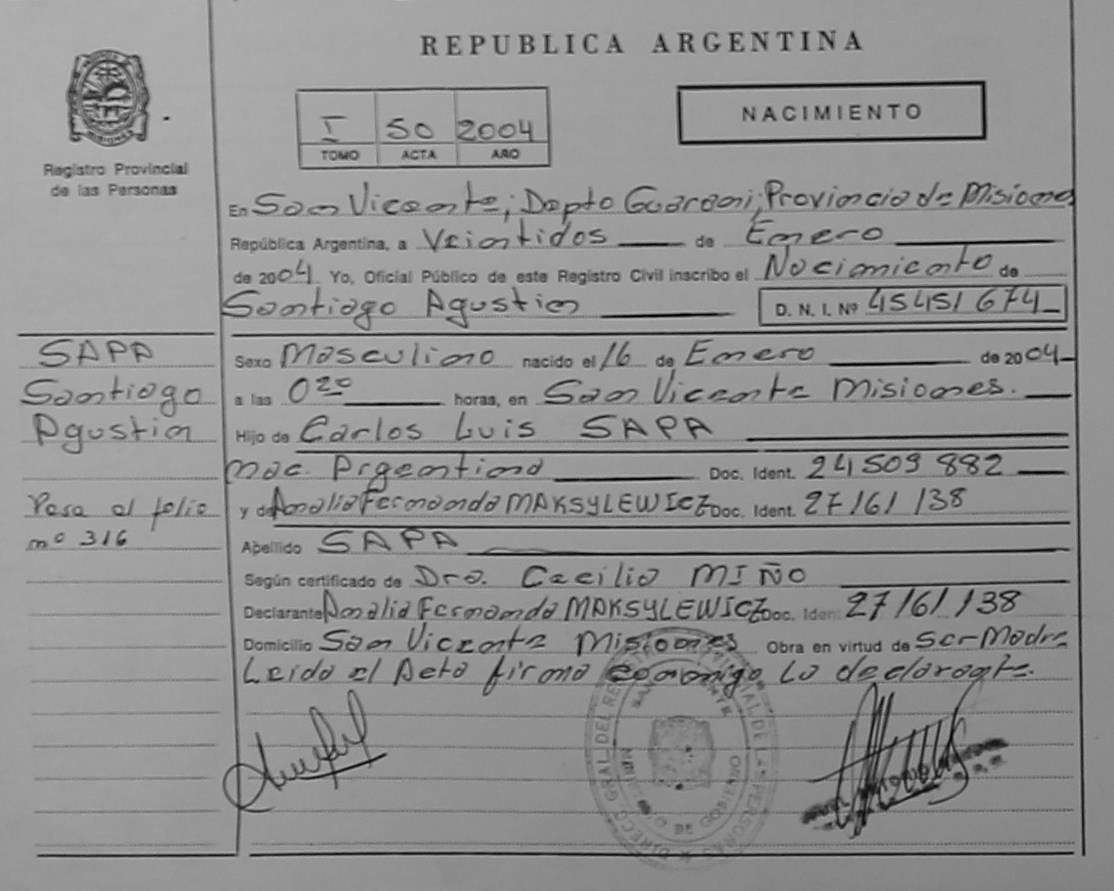 REPUBLICA ARGENTINA
MISIONES
Registro Provincial
de las Personas
I 50 2004
TOMO ACTA AÑO
NACIMIENTO
En San Vicente, Depto Guarani, Provincia de Misiones
República Argentina, a Veintidos de Enero
de 2004. Yo, Oficial Público de este Registro Civil inscribo el Nacimiento de
Santiago Agustin D. N. I. Nº 45451674
SAPA
Santiago
Agustin
Pasa al folio
nº 316
Sexo Masculino nacido el 16 de Enero de 2004
a las 0 20 horas, en San Vicente Misiones.
Hijo de Carlos Luis SAPA
nac. Argentina Doc. Ident. 24509882
y de Analia Fernanda MAKSYLEWICZ Doc. Ident. 27161138
Apellido SAPA
Según certificado de Dra. Cecilia MIÑO
Declarante Analia Fernanda MAKSYLEWICZ Doc. Ident 27161138
Domicilio San Vicente Misiones Obra en virtud de Ser Madre
Leida el Acta firma conmigo La declarante.
DE GOBIERNO